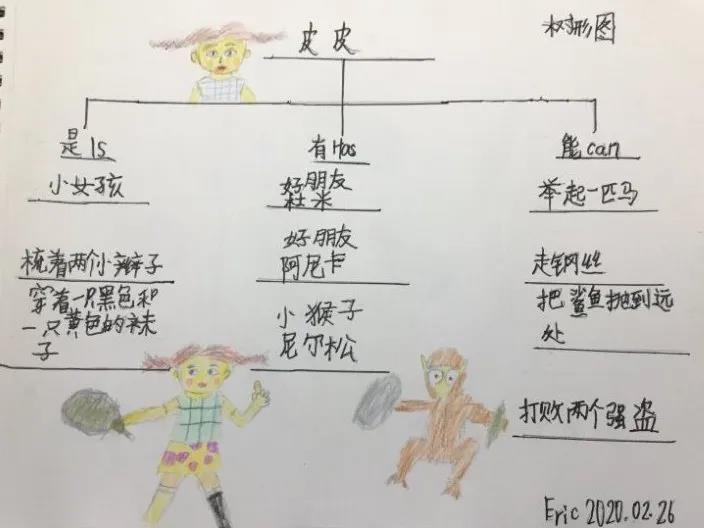 皮皮
树形图
是 Is
小女孩
梳着两个小辫子
穿着一只黑色和
一只黄色的袜
子
有 Has
好朋友
杜米
好朋友
阿尼卡
小猴子
尼尔松
能 can
举起一匹马
走钢丝
把鲨鱼抛到远
处
打败两个强盗
Eric 2020.02.26